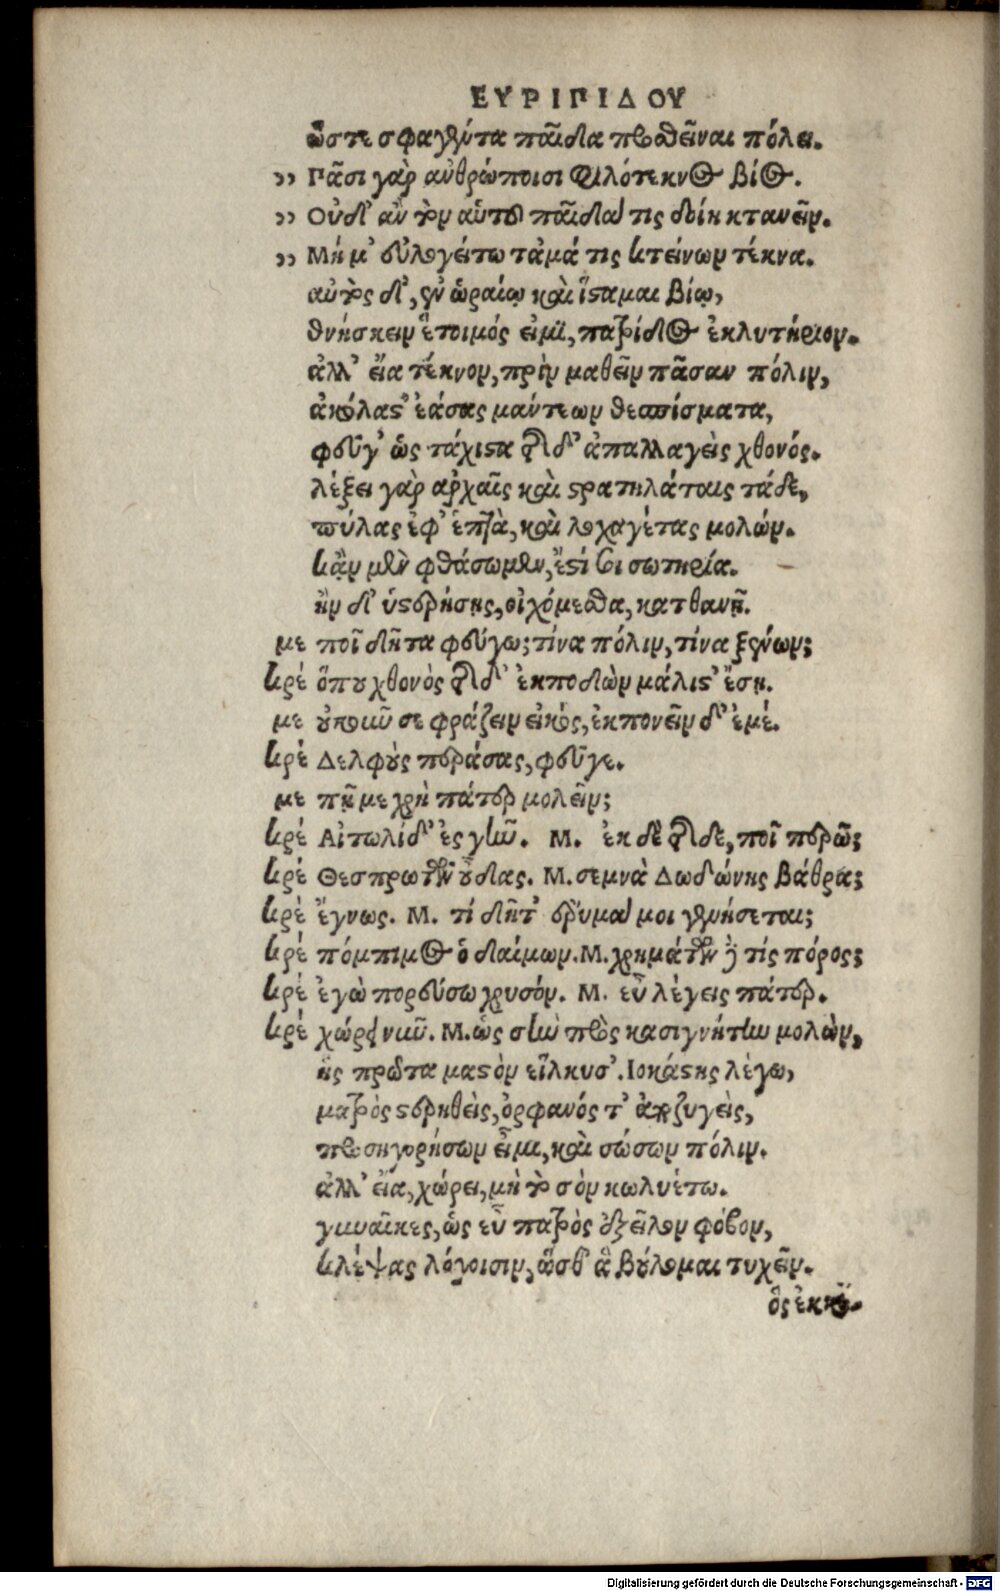 ΕΥΡΙΠΙΔΟΥ
ὥστε σφαγέντα παῖδα προθεῖναι πόλει.
›› Πᾶσι γὰρ ἀνθρώποισι φιλότεκνος βίος.
›› Οὐδ' ἂν τὸν αὑτοῦ παῖδά τις δοίη κτανεῖν.
›› Μή μ' εὐλογείτω τἀμά τις κτείνων τέκνα.
αὐτὸς δ', ἐν ὡραίῳ καὶ ἵσταμαι βίῳ,
θνήσκειν ἕτοιμός εἰμι, πατρίδος ἐκλυτήριον.
ἀλλ' εἴα τέκνον, πρὶν μαθεῖν πᾶσαν πόλιν,
ἀκόλαστ' ἐάσας μάντεων θεσπίσματα,
φεῦγ' ὡς τάχιστα τῆσδ' ἀπαλλαγεὶς χθονός.
λέξει γὰρ ἀρχαῖς καὶ στρατηλάταις τάδε,
πύλας ἐφ' ἑπτὰ, καὶ λοχαγέτας μολών.
κἂν μὲν φθάσωμεν, ἔστί σοι σωτηρία.
ἢν δ' ὑστερήσῃς, οἰχόμεσθα, κατθανῇ.
με ποῖ δῆτα φεύγω; τίνα πόλιν, τίνα ξένων;
κρέ ὅπου χθονὸς τῆσδ' ἐκποδὼν μάλιστ' ἔσῃ.
με οὐκοῦν σε φράζειν εἰκός, ἐκπονεῖν δ' ἐμέ.
κρέ Δελφοὺς περάσας, φεῦγε.
με πῇ με χρὴ πάτερ μολεῖν;
κρέ Αἰτωλίδ' ἐς γῆν. Μ. ἐκ δὲ τῆσδε, ποῖ περῶ;
κρέ Θεσπρωτῶν οὖδας. Μ. σεμνὰ Δωδώνης βάθρα;
κρέ ἔγνως. Μ. τί δῆτ' ἔρυμά μοι γενήσεται;
κρέ πόμπιμος ὁ δαίμων. Μ. χρημάτων δὲ τίς πόρος;
κρέ ἐγὼ πορεύσω χρυσόν. Μ. εὖ λέγεις πάτερ.
κρέ χώρει νῦν. Μ. ὡς σὴν πρὸς κασιγνήτην μολὼν,
ἧς πρῶτα μαστὸν εἵλκυσ'. Ἰοκάστης λέγω,
μητρὸς στερηθεὶς, ὀρφανός τ' ἀποζυγεὶς,
προσηγορήσων εἶμι, καὶ σώσων πόλιν.
ἀλλ' εἴα, χώρει, μὴ τὸ σὸν κωλυέτω.
γυναῖκες, ὡς εὖ πατρὸς ἐξεῖλον φόβον,
κλέψας λόγοισιν, ὥσθ' ἃ βούλομαι τυχεῖν.